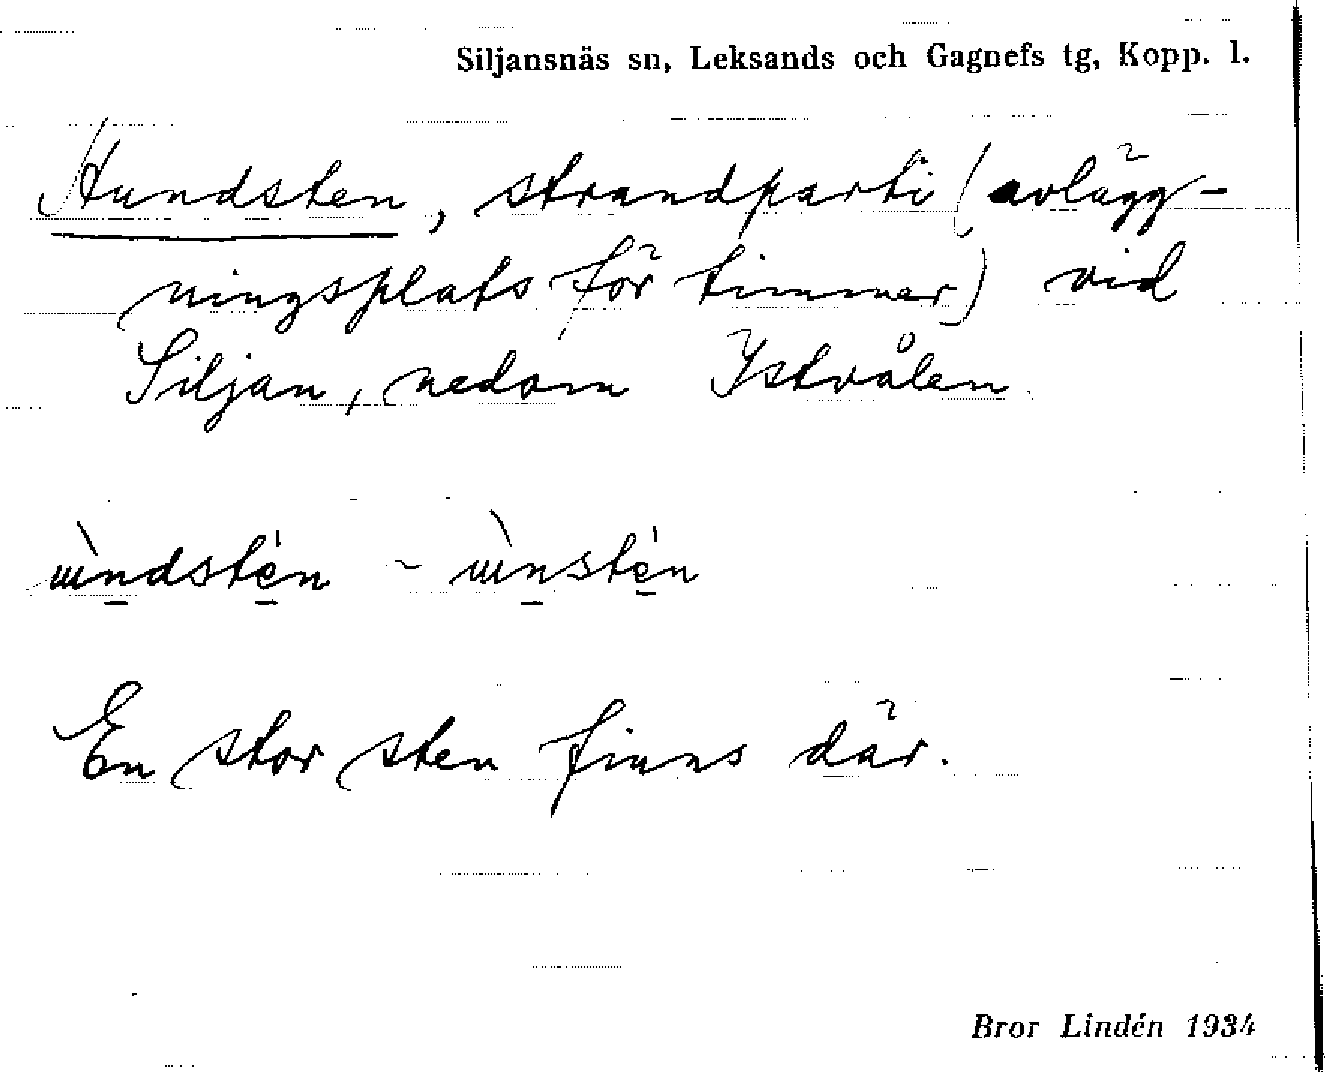 Siljansnäs sn, Leksands och Gagnefs tg, Kopp. l.
Hundsten, strandparti (avlägg-
ningsplats för timmer) vid
Siljan, nedom Ystvålen
ɯ̀ndstén ~ ɯ̀nstén
En stor sten finns där.
Bror Lindén 1934